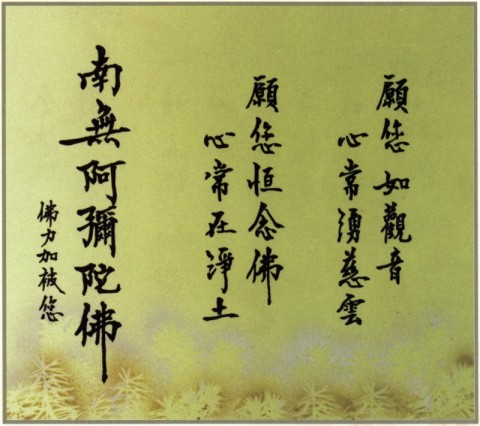 願您如觀音
心常湧慈雲
願您恒念佛
心常在淨土
南無阿彌陀佛
佛力加被您